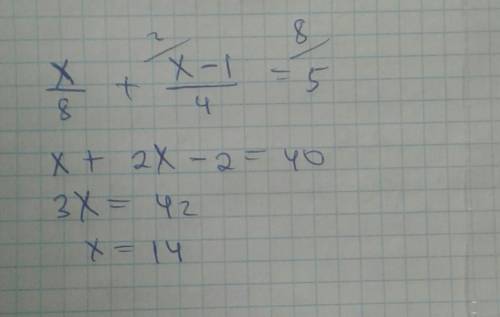 2/ 8/
x/8 + (x-1)/4 = 5
x + 2x - 2 = 40
3x = 42
x = 14